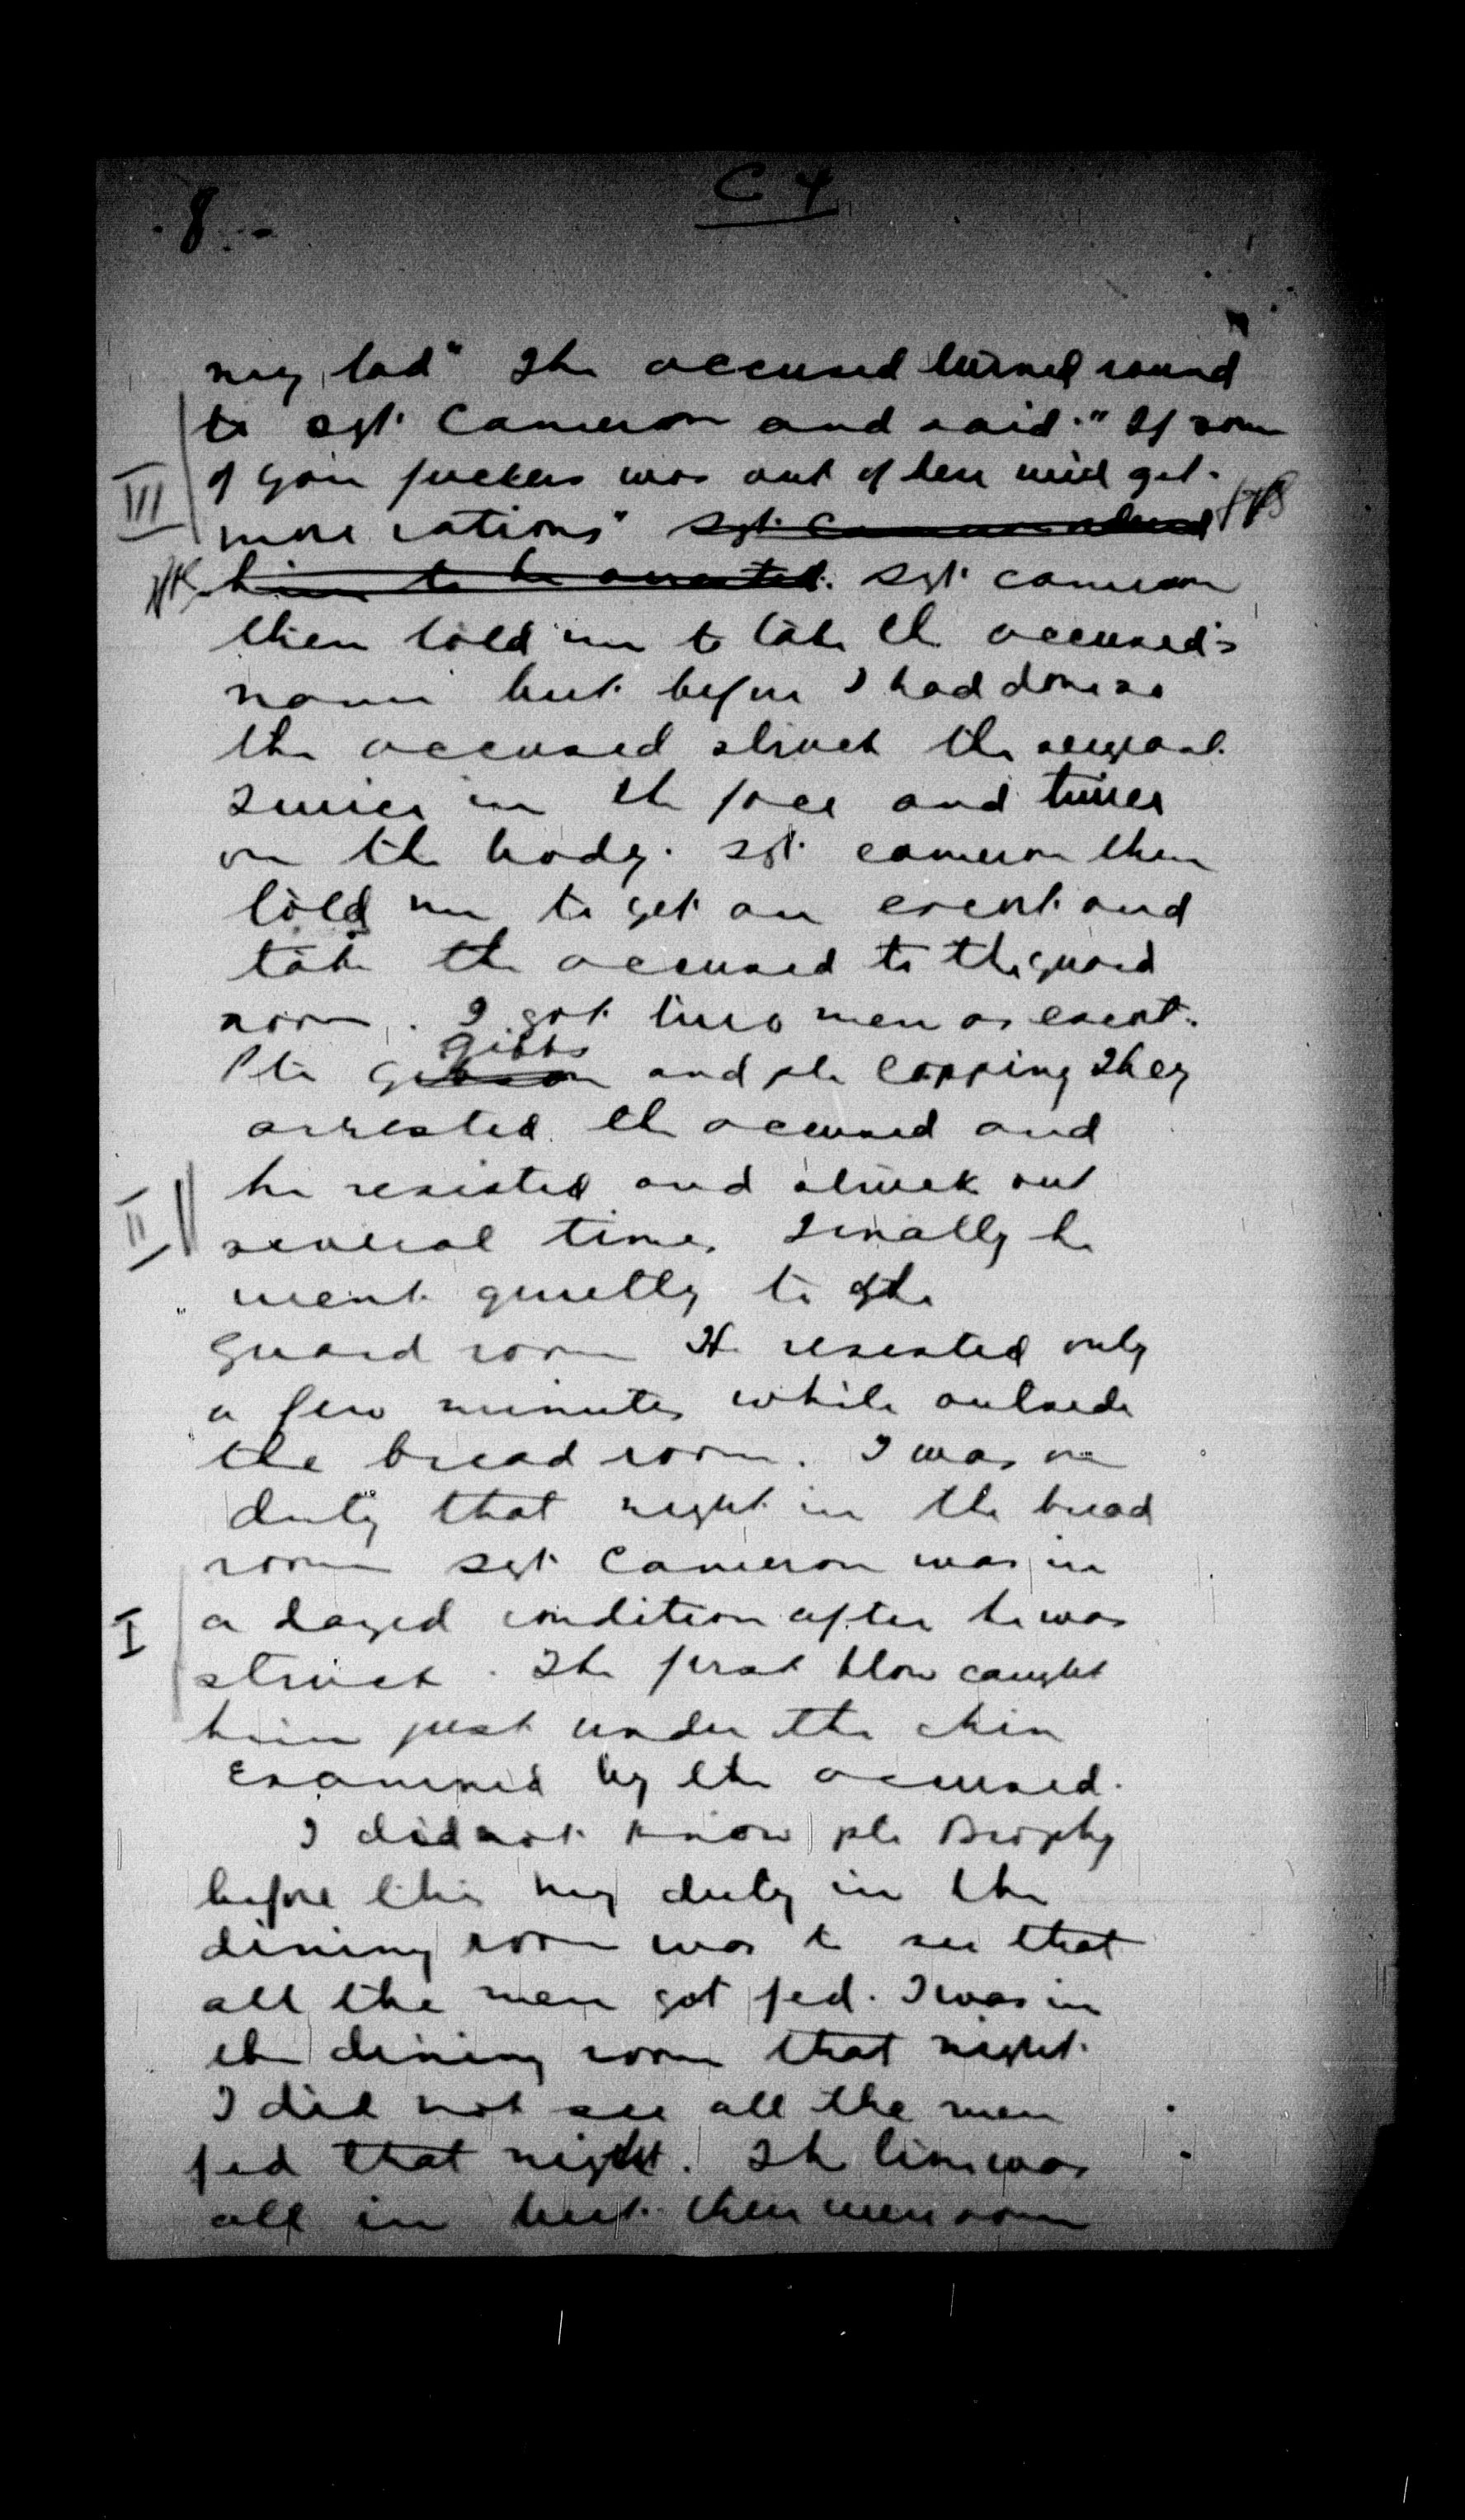 C 4
8
my lad" The accused turned round
to Sgt. Cameron and said: "If some
of you fuckers was out of here we'd get
III
more rations" Sgt. Cameron ordered
him to be arrested. Sgt Cameron
then told me to take the accused's
name but before I had done so
the accused struck the sergeant
twice in the face and twice
on the body. Sgt. Cameron then
told me to get an escort and
take the accused to the guard
room. I got two men as escort.
Gibbs
Pte Gibson and pte Copping They
arrested the accused and
he resisted and struck out
II
several times Finally he
went quietly to the
guard room He resisted only
a few minutes while outside
the bread room. I was on
duty that night in the bread
room Sgt Cameron was in
a dazed condition after he was
I
struck. The first blow caught
him just under the chin
Examined by the accused.
I did not know pte Brophy
before this my duty in the
dining room was to see that
all the men got fed. I was in
the dining room that night.
I did not see all the men
fed that night. The line was
all in but there were some